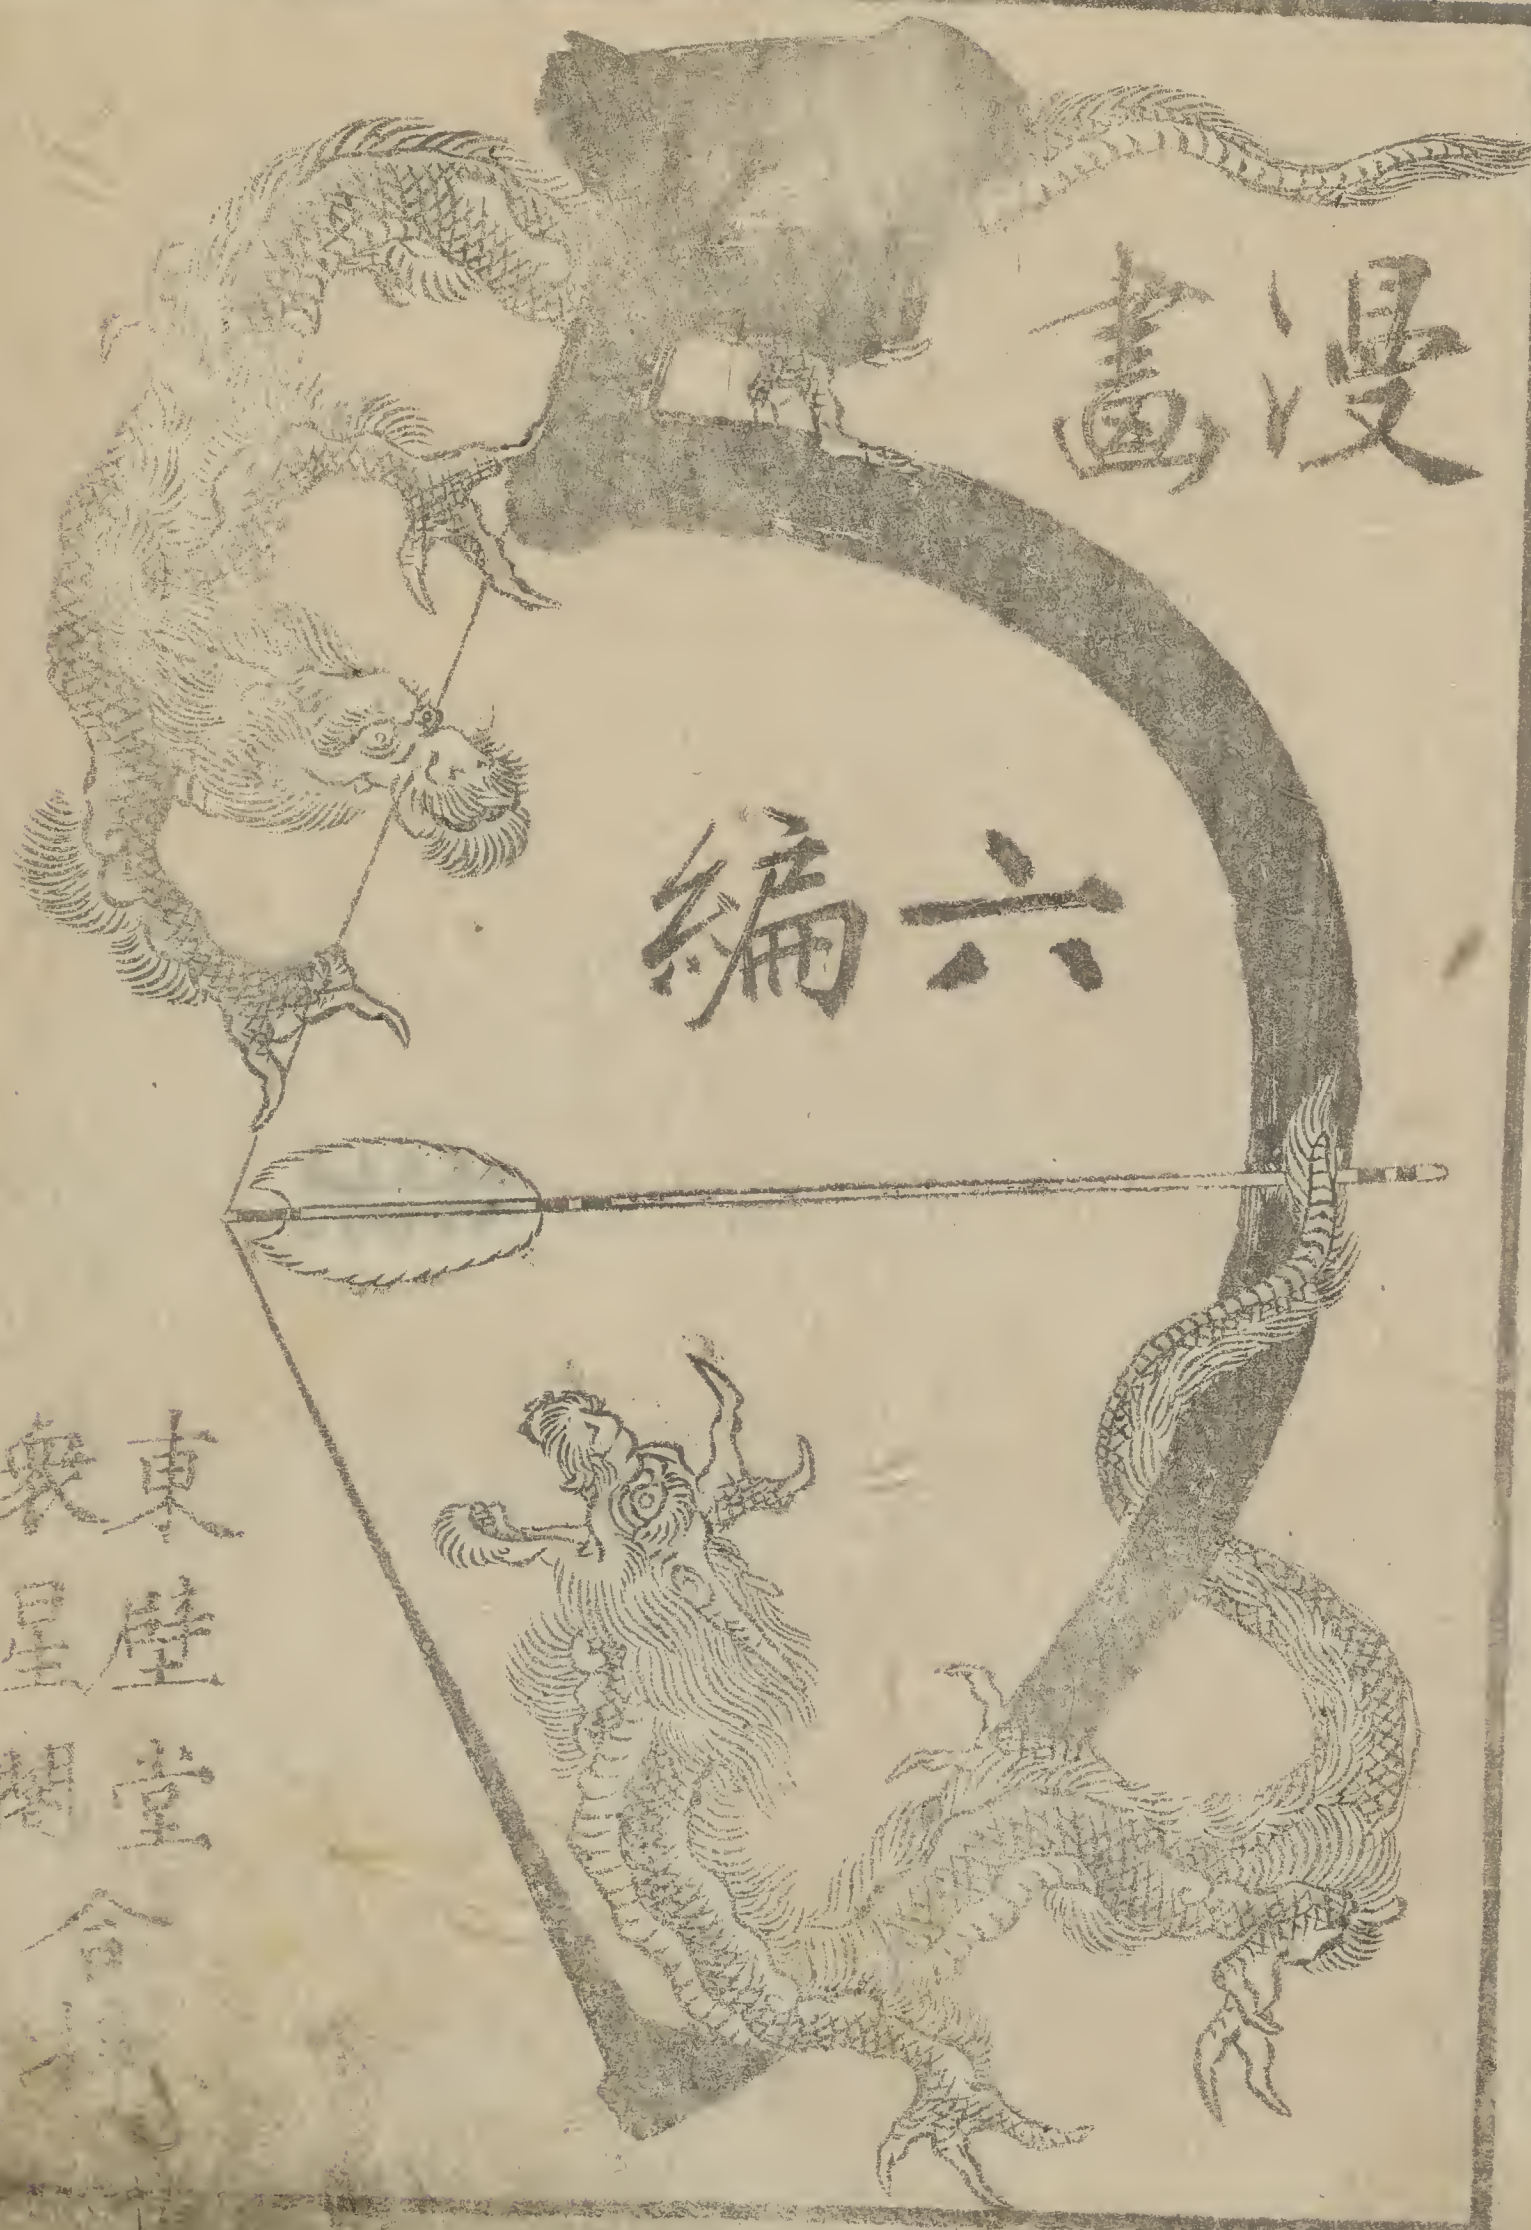 漫畫
六編
東壁堂
衆星閣
合